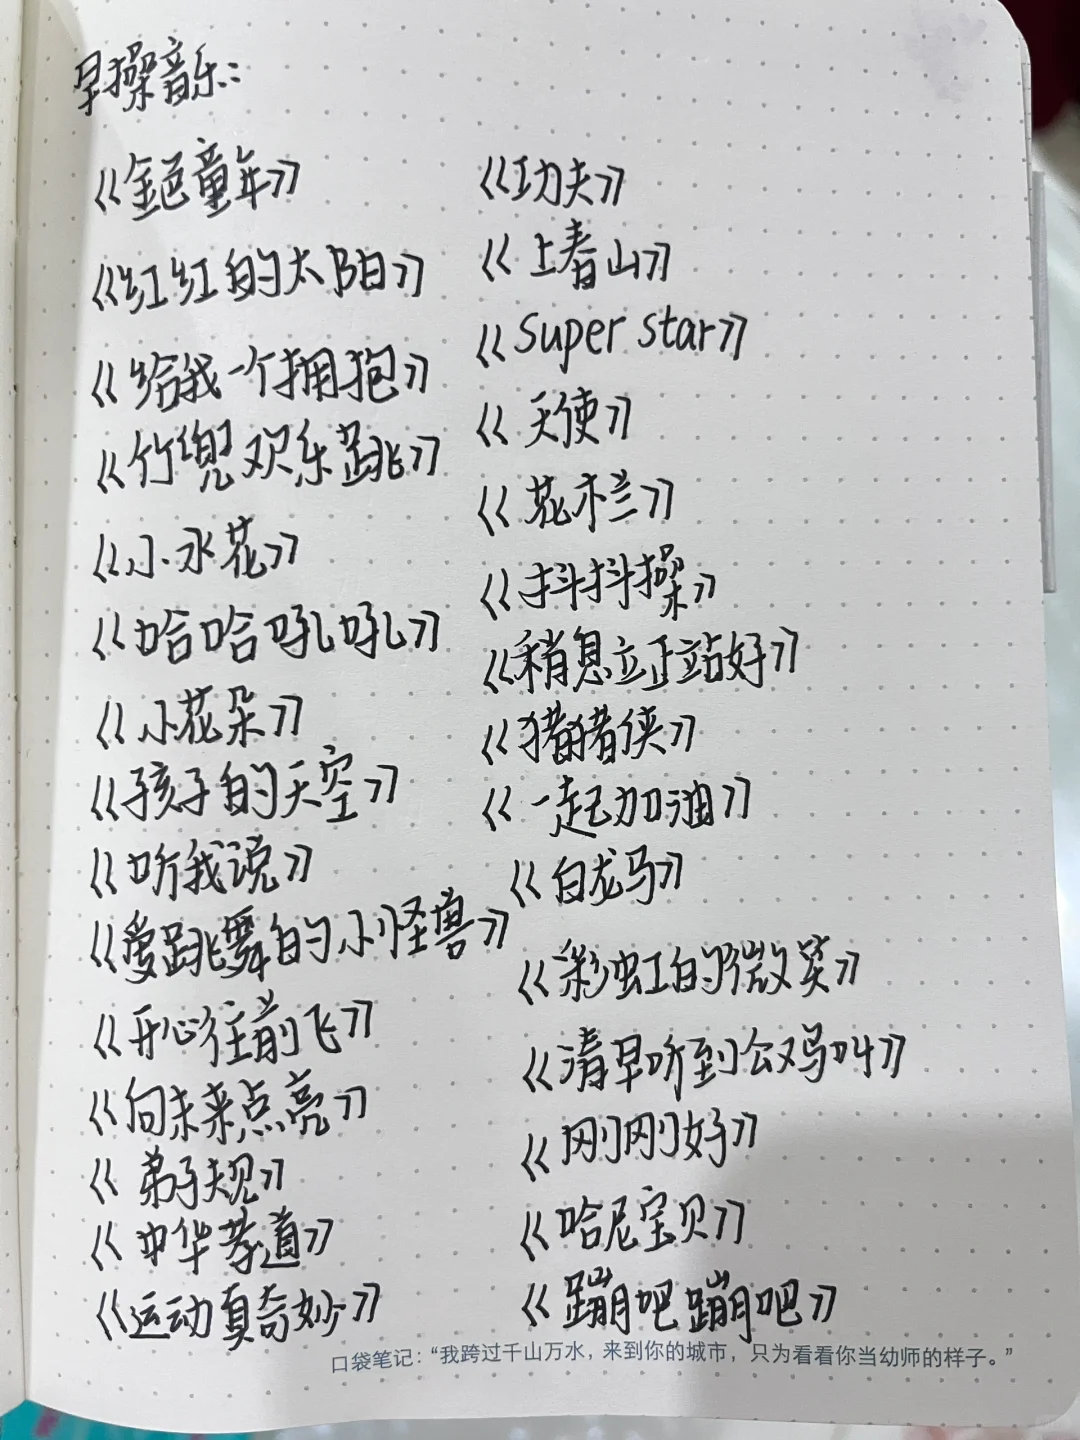 早操音乐:
《金色童年》
《红红的太阳》
《给我一个拥抱》
《竹兜欢乐跳》
《小水花》
《哈哈吼吼》
《小花朵》
《孩子的天空》
《听我说》
《爱跳舞的小怪兽》
《开心往前飞》
《向未来点亮》
《弟子规》
《中华孝道》
《运动真奇妙》
《功夫》
《上春山》
《super star》
《天使》
《花木兰》
《抖抖操》
《稍息立正站好》
《猪猪侠》
《一起加油》
《白龙马》
《彩虹的微笑》
《清早听到公鸡叫》
《刚刚好》
《哈尼宝贝》
《蹦吧蹦吧》
口袋笔记：“我跨过千山万水，来到你的城市，只为看看你当幼师的样子。”